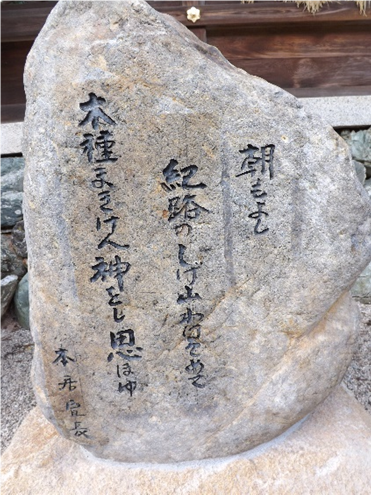 朝もよし
紀路のしげ山わけそめて
木種まきけん神をし思ほゆ
本居宣長